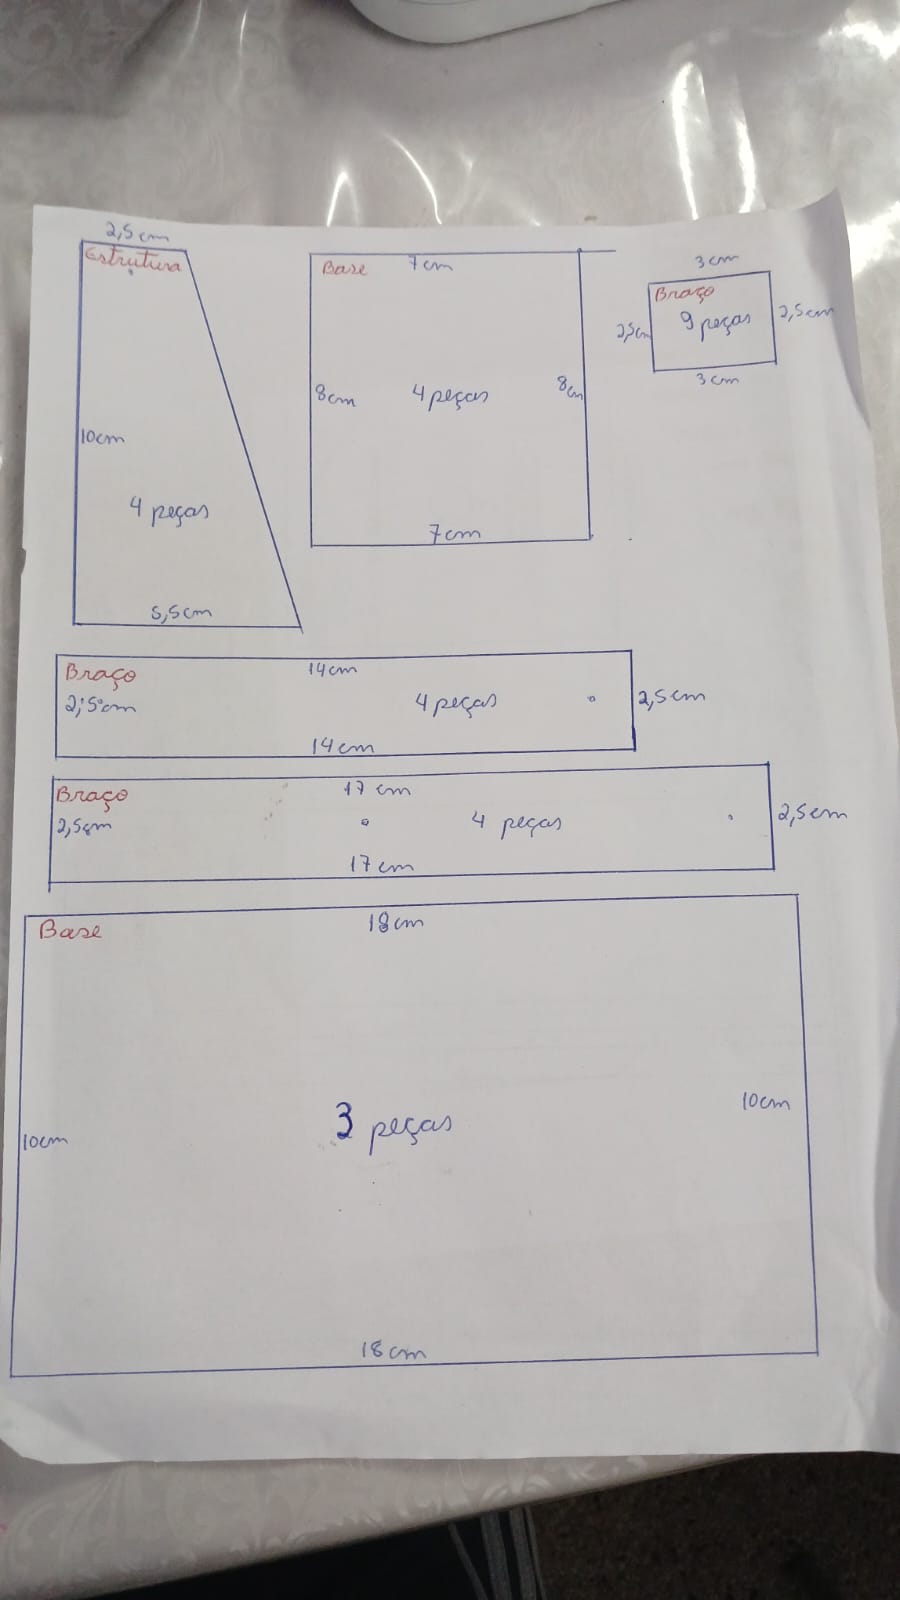 2,5cm
Estrutura
10cm
4 peças
5,5cm
Base
7cm
8cm
4 peças
8cm
7cm
3cm
Braço
2,5cm
9 peças
2,5cm
3cm
Braço
14cm
2,5cm
4 peças
2,5cm
14cm
Braço
17cm
2,5cm
4 peças
2,5cm
17cm
Base
18cm
10cm
3 peças
10cm
18cm